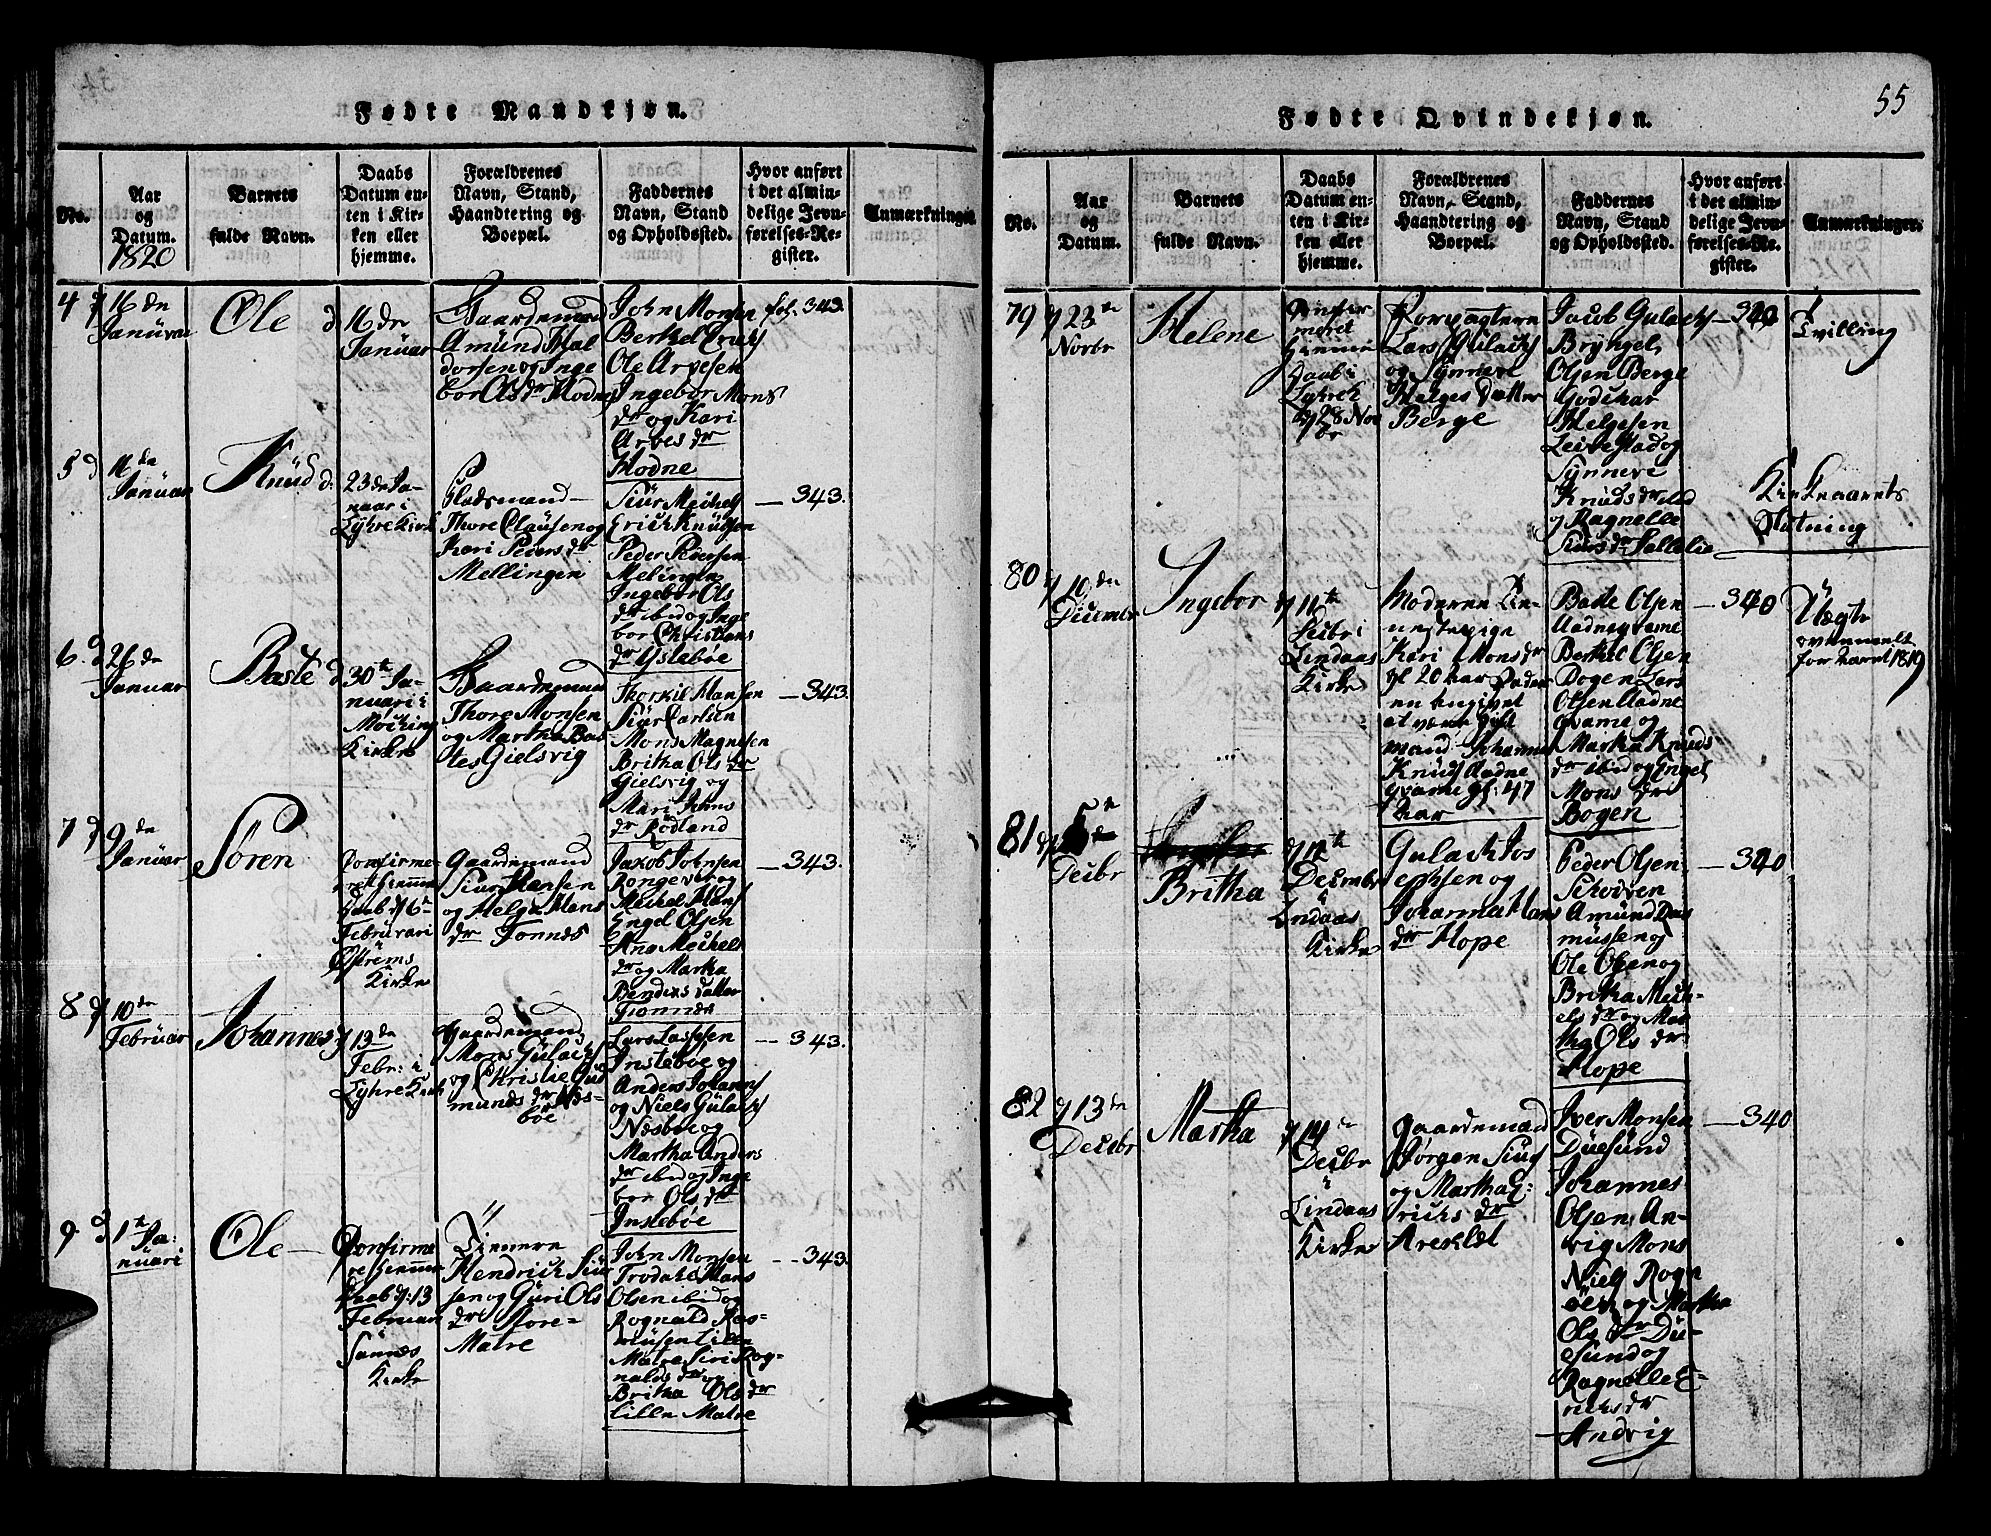 Fødte Mandkjøn.
No.
Aar
og
Datum.
1820
Barnets
fulde Navn.
Daabs
Datum en-
ten i Kir-
ken eller
hjemme.
Forældrenes
Navn, Stand,
Haandtering og
Boepæl.
Faddernes
Navn, Stand
og Opholdssted.
Hvor anført
i det almin-
delige Jevn-
førelses-Re-
gister.
Anmærkninger.
4
16 de
Januar
Ole
d 16 de
Januar
Gaardemand
Amund Hal
dorsen og Inge
bor Ols dr Hodne
John Monsen
Ole Arvesen
Ingebor Mons
dr og Kari
Arves dr
Hodne
fol. 343
5
16 de
Januar
Knud
d: 23 de Ja-
nuar i
Lyhre Kirk
Pladsmand
Thore Clausen og
Kari Peders dr
Mellingen
Siur Mickels
Erich Knudsen
Peder Iversen
Melingen
Ingebor Ols
dr ibid og Inge
bor Christians
dr Yslebøe
343.
6.
d 26 de
Januar
Baste
d 30 te Ja-
nuari i
Kirke
Gaardemand
Thore Monsen
og Martha Bas
tes Gielsvig
Thorkil Hansen
Siur Carlsen
Mons Magnesen
Britha Ols dr
Gielsvig og
Mari Johns
dr Rödland
343.
7
9 de
Januar
Sören
Confirme-
ret hiemme
Daab d 6 te
Februari
Østrems
Kirke
Gaardemand
Siur Hansen
og Helga Hans
dr Tonnes
Jakob Johnsen
Rongever og
Mickel Hans
Engel Olsen
Ana Mickels
dr og Martha
Benders datter
343.
8
10 de
Februar
Johannes
13 de
Febr: i
Lyhre Kirk
Gaardemand
Mons Gulachs
og Christie Gud
munds dr Næs-
bøe
Lars Lassesen
Instebøe og
Anders Johanns
og Niels Gulachs
Næsbøe og
Martha Anders
dr ibid og Inge
bor Ols dr
Instebøe
343.
9.
d 1 te Ja-
nuari
Ole
Confirme
ret hiemme
Daab d: 13
Februar
Sannes
Kirke
Tienere
Hendrich Siur
sen og Guri Ols
dr Store-
Matre
John Monsen
Trodahl Hans
Olsen ibid og
Rognald Ras-
musen Lille
Matre Siri Rog-
nalds dr og
Britha Ols dr
Lille Matre
343.
55
Fødte Qvindekjøn.
No.
Aar
og
Datum.
Barnets
fulde Navn.
Daabs
Datum en-
ten i Kir-
ken eller
hjemme.
Forældrenes
Navn, Stand,
Haandtering og
Boepæl.
Faddernes
Navn, Stand
og Opholdssted.
Hvor anført
i det almin-
delige Jevn-
førelses-Re-
gister.
Anmærkninger.
79
23 de
Novbr
Helene
Confir
meret
hiemme
Daab i
Lyhre K
28 Nov
br
Forpagteren
Lars Gulachs
og Synneve
Helges Datter
Berge
Jacob Gulachs
Bryngel
Olsen Berge
Godskar
Helgesen
Leivestad og
Synneve
Knuds dr ibid
og Ragnelle
Siurs dr
340
Tvilling
Kirkeaarets
Slutning
80
10 de
Decembr
Ingebor
11 te
Decbr i
Lindaas
Kirke
Moderen Tie-
nestepige
Kari Mons dr
gl 20 Aar Fader
en angivet
at være Gift
mand Johannes
Knuds Aadne
qvame gl: 47
Aar
Baste Olsen
Aadneqvame
Berthel Olsen
Bogen Lars
Olsen Aadne
qvame og
Martha Knuds
dr ibid og Engel
Mons dr
Bogen
340
Uægte
for Aaret 1819
81
5 te
Decbr
Britha
12 te
Decembr
Lindaas
Kirke
Gulack Jos
ephsen og
Johanna Hans
dr Hope
Peder Olsen
Amund Ras
mussen og
Ole Olsen og
Britha Mick-
els dr og Mar
tha Ols dr
Hope
340
82
13 de
Decbr
Martha
14 de
Decbr
i
Lindaas
Kirke
Gaardemand
Jørgen Siurs
og Martha E-
richs dr
Areklet
Iver Monsen
Duesund
Johannes
Olsen An-
vig Mons
Niels Rogn
øen og Martha
Ols dr Du-
esund og
Ragnelle E-
richs dr
Andvig
340